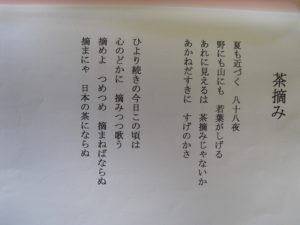 茶摘み
夏も近づく　八十八夜
野にも山にも　若葉がしげる
あれに見えるは　茶摘みじゃないか
あかねだすきに　すげのかさ
ひより続きの今日この頃は
心のどかに　摘みつつ歌う
摘めよ　つめつめ　摘まねばならぬ
摘まにゃ　日本の茶にならぬ